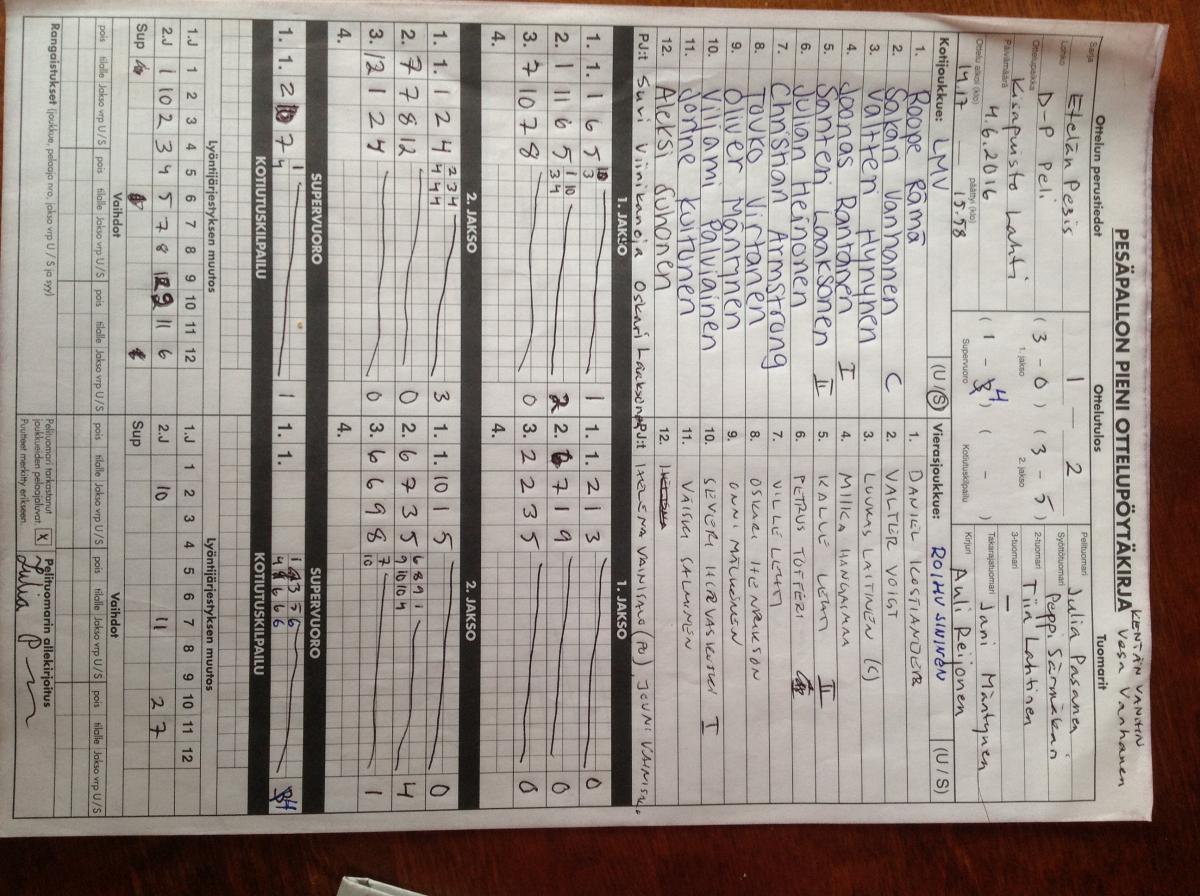 PESÄPALLON PIENI OTTELUPÖYTÄKIRJA
KENTÄN VANHIN
Vesa Vanhanen
Ottelun perustiedot
Ottelutulos
Tuomarit
Sarja
Etelän Pesis
1
2
Pelituomari
Julia Pasanen
Lohko
D-P Peli
( 3 - 0 ) ( 3 - 5 )
1. jakso
2. jakso
Syöttötuomari
Peppi Särmäkari
Ottelupaikka
Kisapuisto Lahti
2-tuomari
Tiia Lahtinen
Päivämäärä
4.6.2016
( 1 - 4 ) ( - )
Supervuoro
Kotiutuskilpailu
3-tuomari
—
Takarajatuomari
Jani Mäntynen
Ottelu alkoi (klo)
14.17
päättyi (klo)
15.58
Kirjuri
Auli Reijonen
Kotijoukkue: LMV (U/S)
Vierasjoukkue: ROIHU SININEN (U/S)
1. Roope Rämä
2. Sakari Vanhanen C
3. Valtteri Hynynen
4. Joonas Rantanen I
5. Santeri Laaksonen II
6. Julian Heinonen
7. Christian Armstrong
8. Touko Virtanen
9. Oliver Mäntynen
10. Viljami Palviainen
11. Jonne Kultunen
12. Aleksi Suhonen
PJ:t Suvi Viinikanoja Oskari Laaksonen
1. DANIEL
2. VALTER VOIGT
3. LUUKAS LAITINEN (C)
4. MIIKA HANGASMAA
5. KALLE LEHTI II
6. PETRUS TOFFERI
7. VILLE LEHTI
8. OSKARI HENRIKSON
9. ONNI MÄLKÖNEN
10. SEVERI HURVASKOSKI I
11. VÄISKI SALMINEN
12.
PJ:t HELENA VAINISALO (PJ) JOUNI VAINISALO
1. JAKSO
1. JAKSO
1. 1. 1 6 5 3 1
2. 1 11 6 5 1 10 3 4 2
3. 7 10 7 8 0
4.
1. 1. 2 1 3 0
2. 7 1 9 0
3. 2 2 3 5 0
4.
2. JAKSO
2. JAKSO
1. 1. 1 2 4 2 3 4 4 4 4 3
2. 7 7 8 12 0
3. 12 1 2 4 0
4.
1. 1. 10 1 5 0
2. 6 7 3 5 6 8 9 1 9 10 10 4 4
3. 6 6 9 8 7 10 1
4.
SUPERVUORO
SUPERVUORO
1. 1. 2 7 1 4 1
1. 1. 4
KOTIUTUSKILPAILU
KOTIUTUSKILPAILU
Lyöntijärjestyksen muutos
Lyöntijärjestyksen muutos
1.J 1 2 3 4 5 6 7 8 9 10 11 12
2.J 1 10 2 3 4 5 7 8 12 9 11 6
Sup
1.J 1 2 3 4 5 6 7 8 9 10 11 12
2.J 10 11 2 7
Sup
Vaihdot
Vaihdot
pois tilalle Jakso vrp U/S pois tilalle Jakso vrp U/S pois tilalle Jakso vrp U/S
pois tilalle Jakso vrp U/S pois tilalle Jakso vrp U/S pois tilalle Jakso vrp U/S
Rangaistukset (joukkue, pelaaja nro, jakso vrp U / S ja syy)
Pelituomari tarkastanut joukkueiden pelaajaluvat. X
Puutteet merkitty erikseen.
Pelituomarin allekirjoitus
Julia P